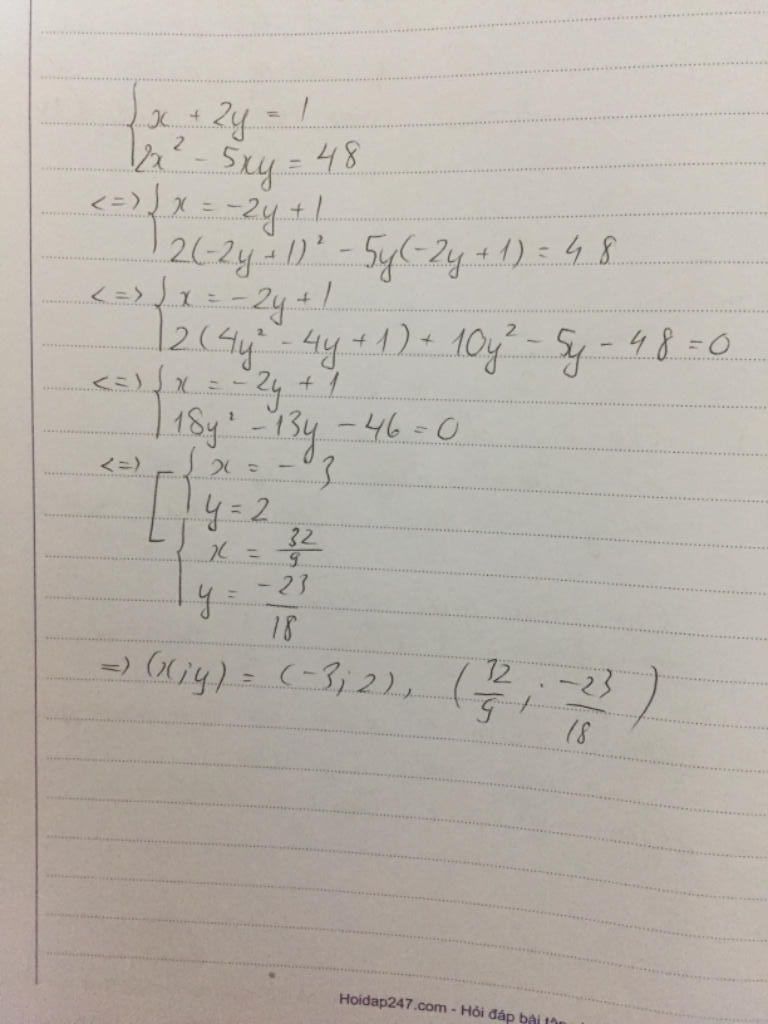 { x + 2y = 1
2x² - 5xy = 48
<=> { x = -2y + 1
2(-2y + 1)² - 5y(-2y + 1) = 48
<=> { x = -2y + 1
2(4y² - 4y + 1) + 10y² - 5y - 48 = 0
<=> { x = -2y + 1
18y² - 13y - 46 = 0
<=> [ { x = -3
y = 2
{ x = 32/9
y = -23/18
=> (x;y) = (-3;2), (32/9; -23/18)
Hoidap247.com - Hỏi đáp bài